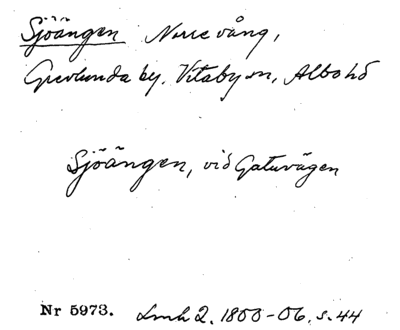 Sjöängen Norrevång,
Grevlunda by, Vitaby sn, Albo hd
Sjöängen, vid Gatuvägen
Nr 5973. Lmh 2. 1800-06. s. 44